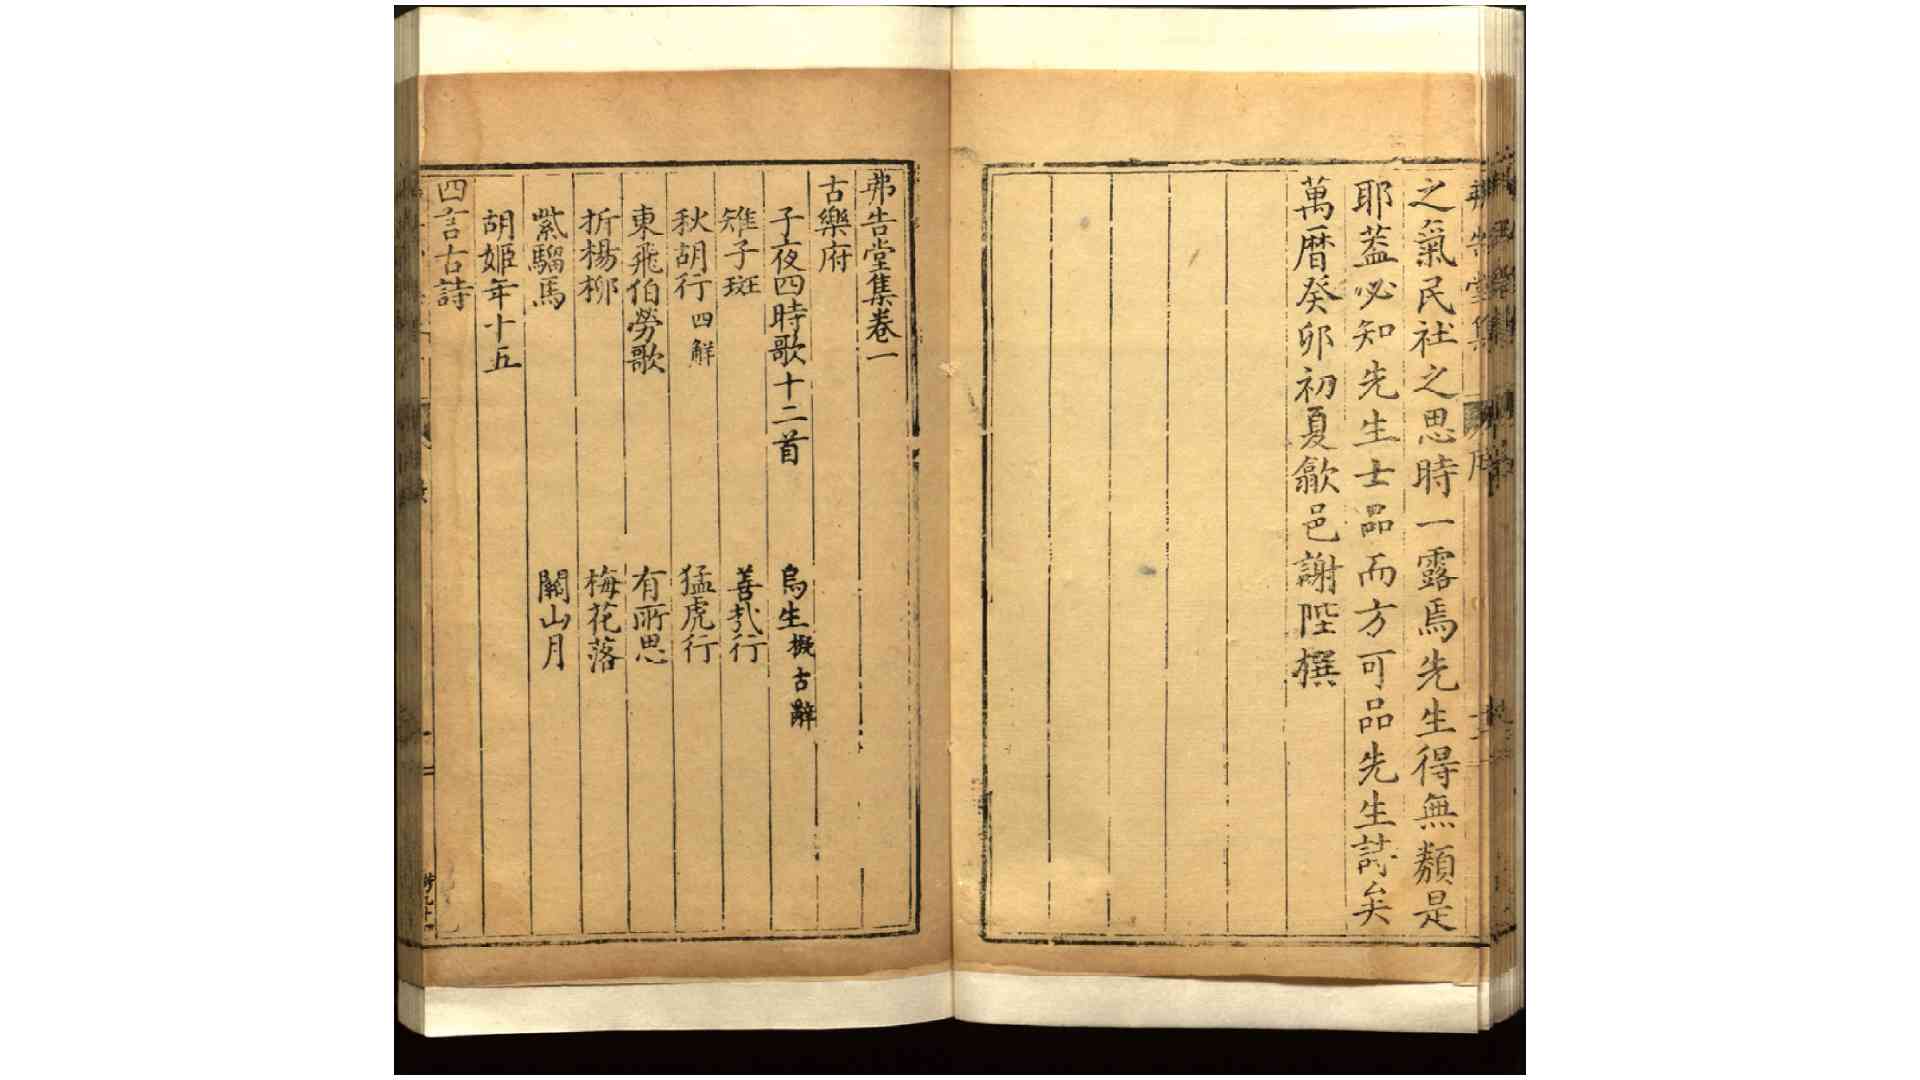 之氣民社之思時一露焉先生得無纇是
耶蓋必知先生士品而方可品先生詩矣
萬曆癸卯初夏歙邑謝陛撰
弗告堂集卷一
古樂府
子夜四時歌十二首 烏生擬古辭
雉子斑 善哉行
秋胡行四解 猛虎行
東飛伯勞歌 有所思
折楊柳 梅花落
紫騮馬 關山月
胡姬年十五
四言古詩